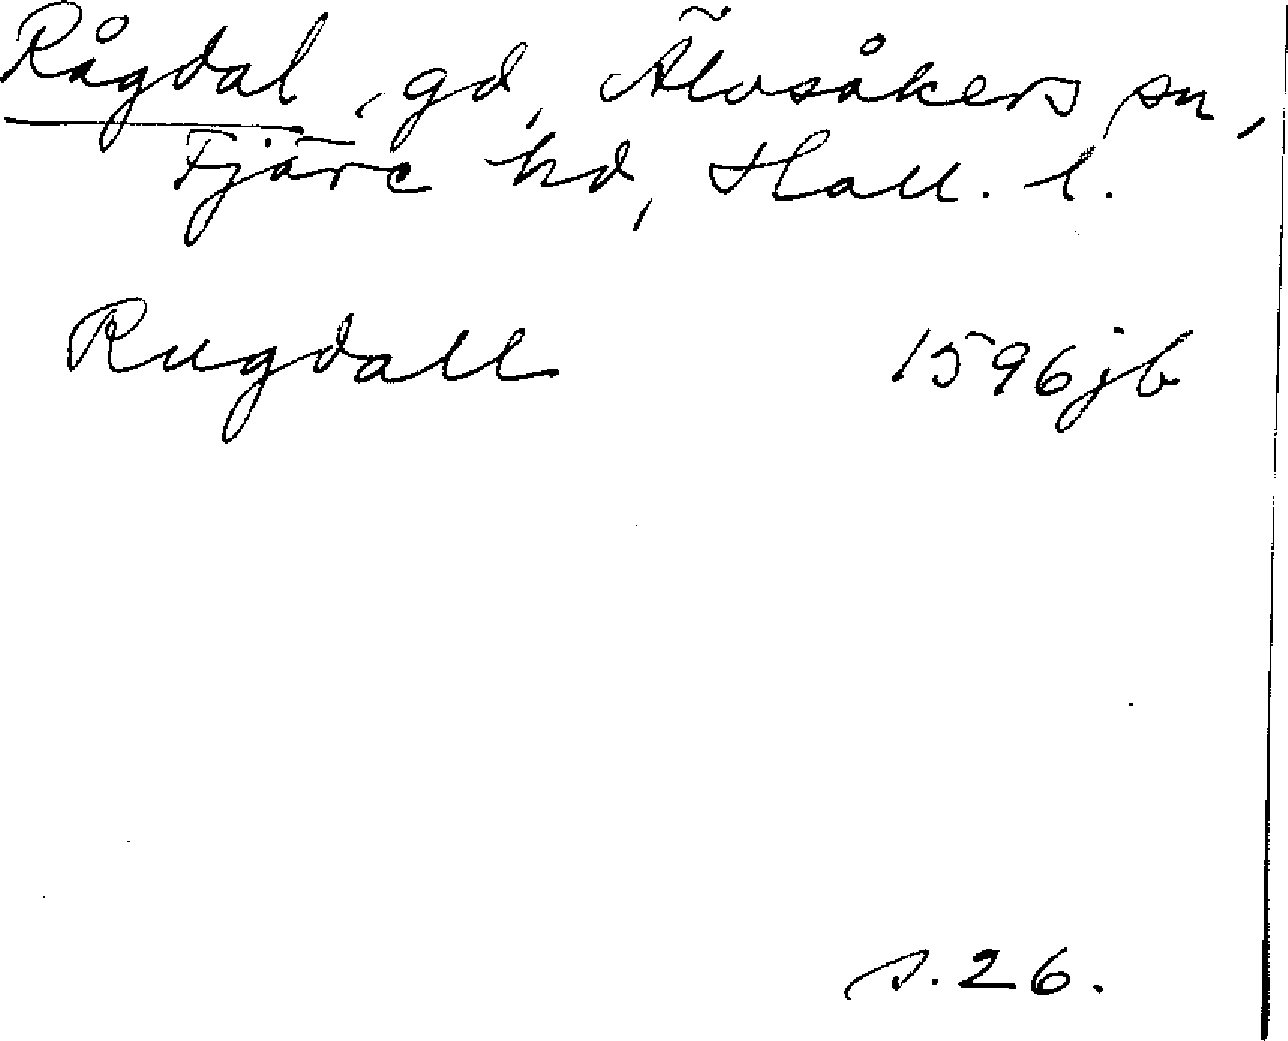 Rågdal, gd, Älvsåkers sn,
Fjäre hd, Hall. l.
Rugdall 1596 jb
s. 26.